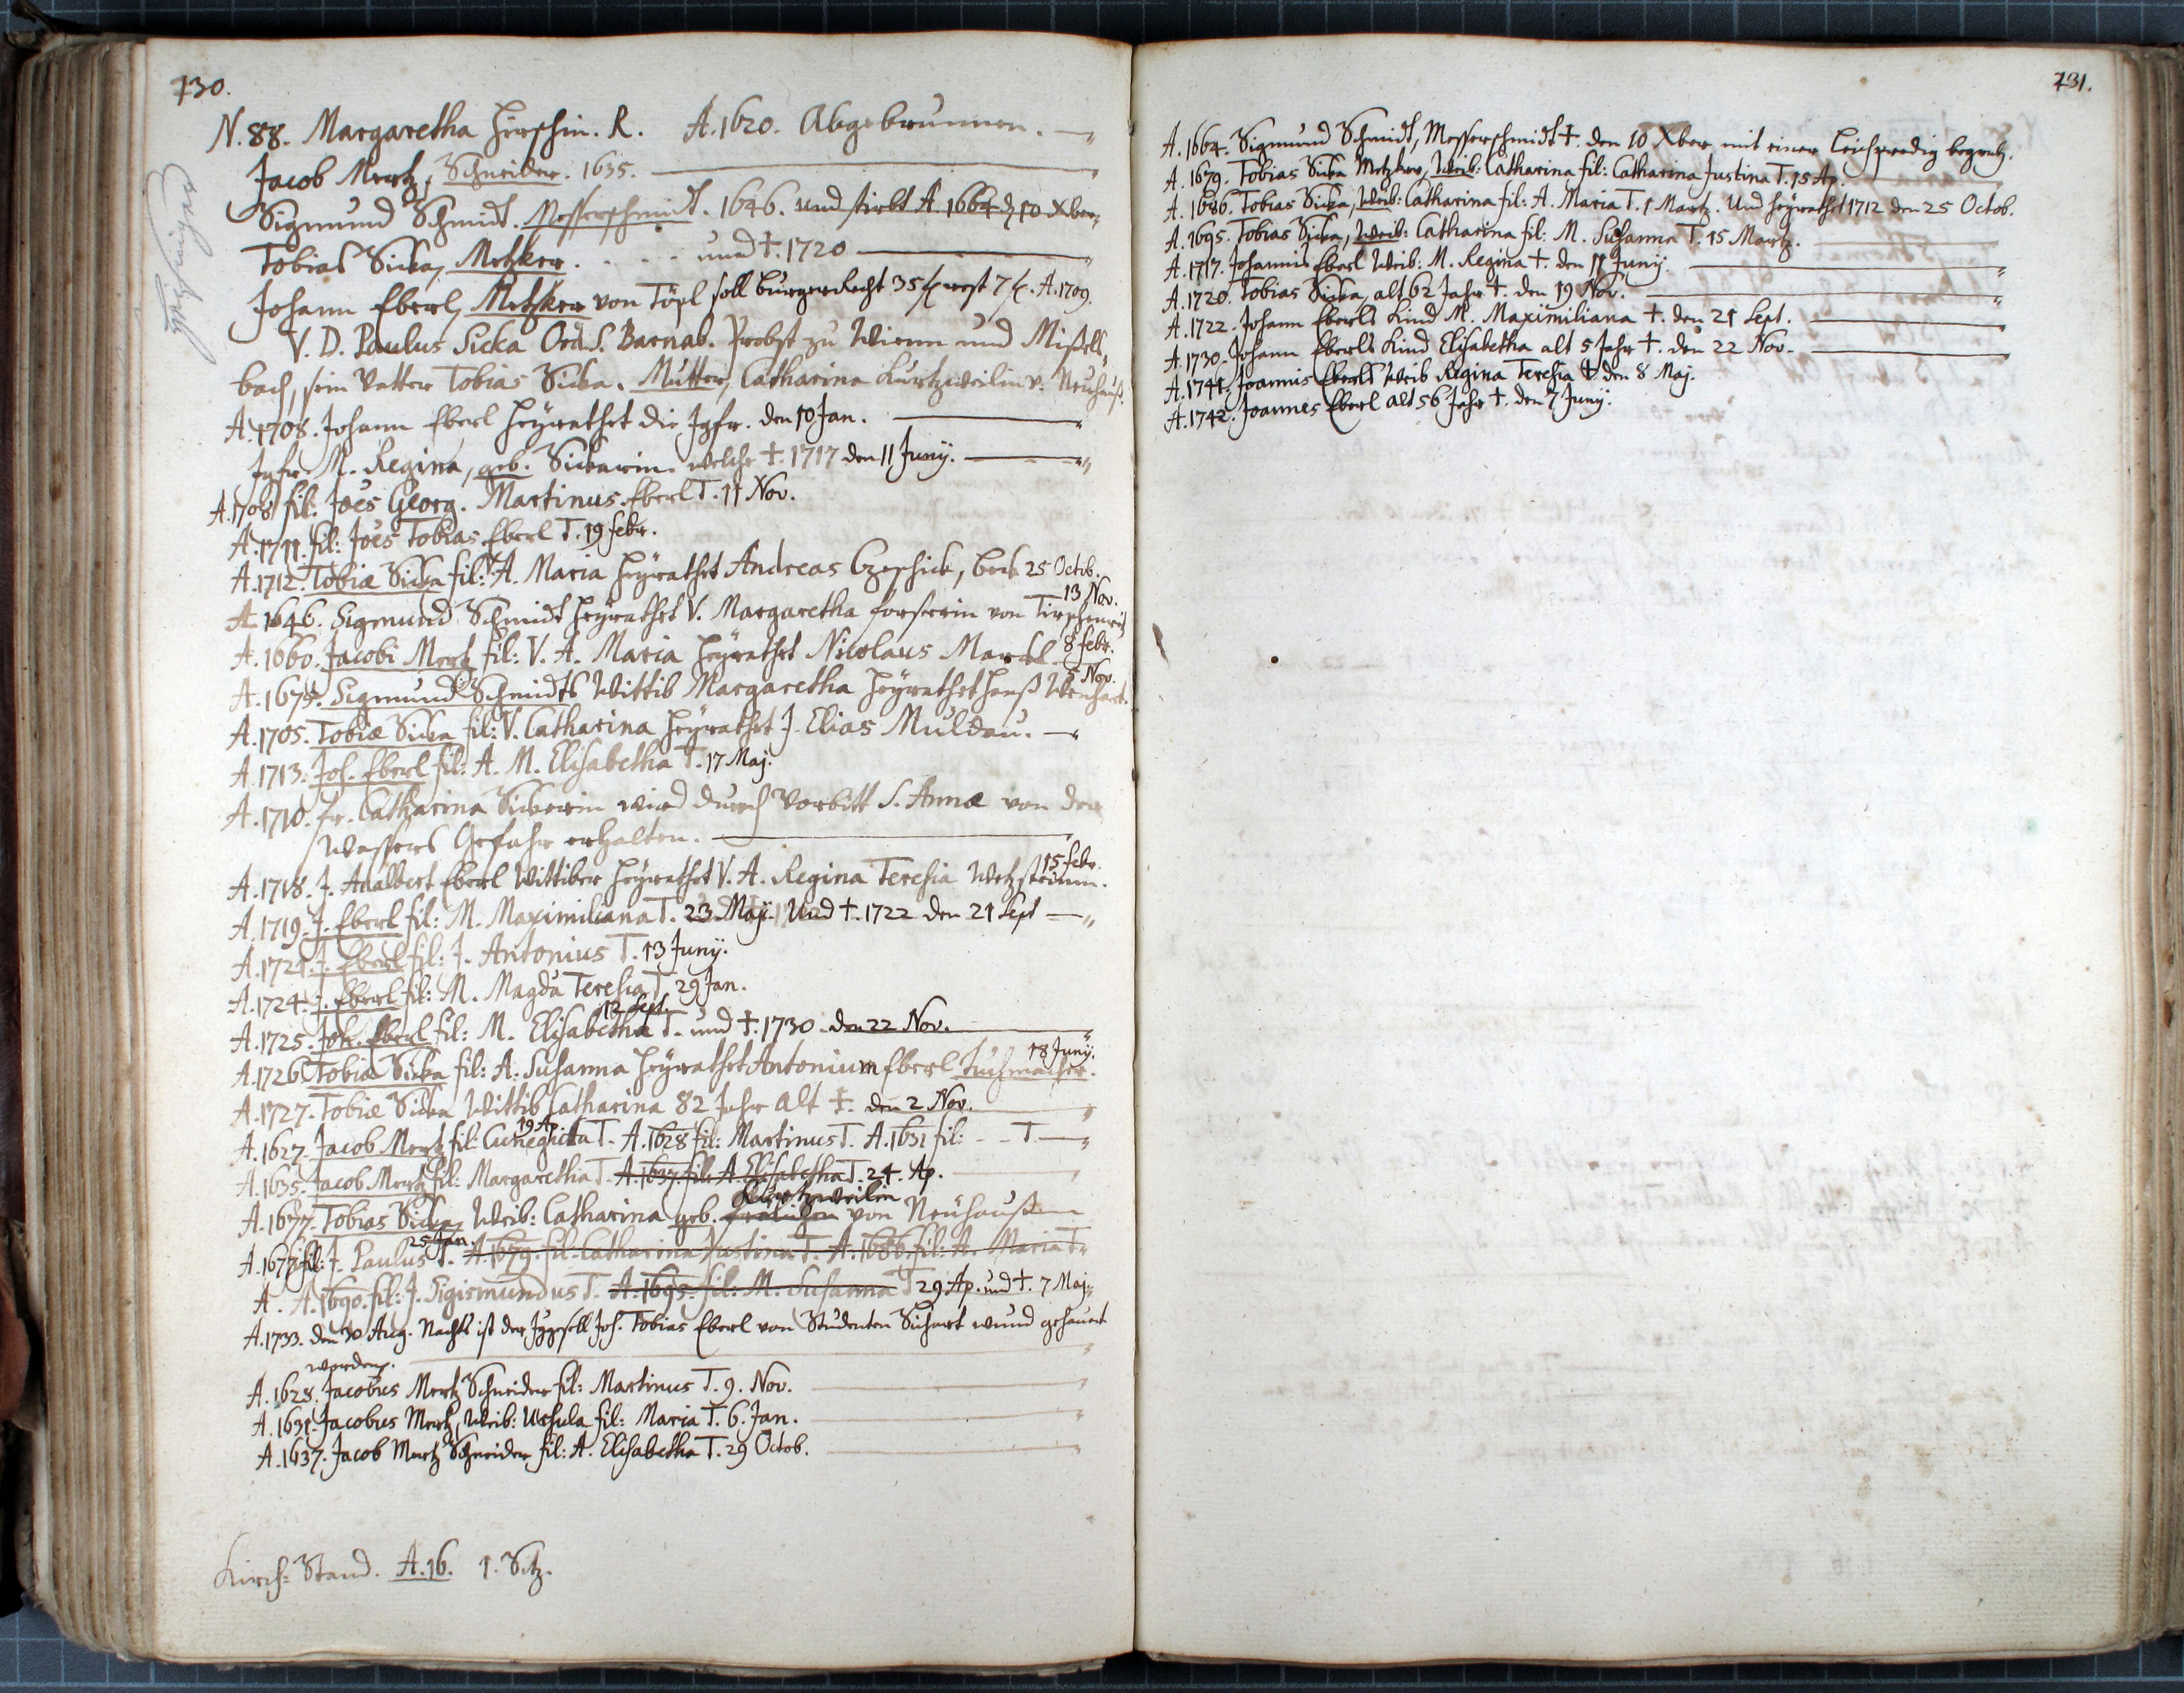 730.
N. 88. Margaretha Hirschin. R. A. 1620. Abgebrunnen.
Jacob Mertz, Schneider. 1635.
Sigmund Schmidt. Messerschmidt. 1646. und stirbt A. 1664 d. 10 Xber
Tobias Sicka, Metzker. . . . . und †. 1720
Johann Eberl, Metzker von Töpl soll burgerRecht 35 f rest 7 f. A. 1709.
V. D. Paulus Sicka Ord. S. Barnab. Probst zu Wienn und Mistell,
bach, sein Vatter Tobias Sicka. Mutter, Catharina Kurtzweilin v: Neuhauß.
A. 1708. Johann Eberl heyrathet die Jgfr. den 10 Jan.
Jgfr. M. Regina, geb. Sickarin welche †. 1717 den 11 Junÿ.
A. 1708 fil: Joes Georg. Martinus. Eberl T. 11 Nov.
A. 1711. fil: Joes Tobias Eberl T. 19 febr.
A. 1712. Tobiæ Sicka fil: A. Maria heyrathet Andreas Czeschick, beck 25 Octob.
13 Nov.
A 1646. Sigmund Schmidt heyrathet V. Margaretha forsterin von Tirschenrit
A. 1660. Jacobi Mertz fil: V. A. Maria heyrathet Nicolaus Martl. 8 febr.
5 Nov.
A. 1675. Sigmund Schmidts Wittib Margaretha heyrathet Hanß Wenhart.
A. 1705. Tobiæ Sicka fil: V. Catharina heyrathet J. Elias Muldau.
A. 1713. Joh. Eberl fil: A. M. Elisabetha T. 17 Maj.
A. 1710. fr. Catharina Sickerin wird durch Vorbitt S. Annæ von der
Wassers Gefahr erhalten.
15 febr.
A. 1718. J. Adalbert Eberl Wittiber heyrathet V. A. Regina Teresia Wetzsteinin.
A. 1719. J. Eberl fil: M. Maximiliana T. 23 Maji. Und †. 1722 den 21 Sept
A. 1721. J. Eberl fil: J. Antonius T. 13 Junÿ.
A. 1724. J. Eberl fil: M. Magda Teresia T. 29 Jan.
12 Sept.
A. 1725. Joh. Eberl fil: M. Elisabetha T. und †. 1730. den 22 Nov.
18 Junÿ.
A. 1726. Tobiæ Sicka fil: A. Susanna heyrathet Antonium Eberl tuchmacher.
A. 1727. Tobiæ Sicka Wittib Catharina 82 Jahr alt †. den 2 Nov.
19 Ap.
A. 1627. Jacob Mertz fil: Cunegunda T. A. 1628 fil: Martinus T. A. 1631 fil: - - T.
A. 1635. Jacob Mertz fil: Margaretha T. A. 1637. fil: A. Elisabetha T. 24. Ap.
Kurtzweilin
A. 1677. Tobias Sicka, Weib: Catharina geb. von Neuhaußen
25 Jan.
A. 1677 fil: J. Paulus T. A. 1679. fil. Catharina Justina T. A. 1686. fil: A. Maria T.
A. A. 1690. fil: J. Sigismundus T. A. 1695. fil: M. Susanna T 29 Ap. und †. 7 Maj.
A. 1733. den 30 Aug. Nachts ist der Jgsell Joh. Tobias Eberl von Studenten Sichart wund gehauet
worden.
A. 1628. Jacobus Mertz Schneider fil: Martinus T. 9. Nov.
A. 1631. Jacobus Mertz, Weib: Ursula fil: Maria T. 6. Jan.
A. 1637. Jacob Mertz Schneider fil: A. Elisabetha T. 29 Octob.
Kirch: Stand. A. 16. 1. Sitz.
731.
A. 1664. Sigmund Schmidt, Messerschmidt †. den 10 Xber mit einer Leichpredig begrab.
A. 1679. Tobias Sicka Metzker, Weib: Catharina fil: Catharina Justina T. 15 Ap.
A. 1686. Tobias Sicka, Weib: Catharina fil: A. Maria T. 1 Martz. Und heyrathet 1712 den 25 Octob.
A. 1695. Tobias Sicka, Weib: Catharina fil: M. Susanna T. 15 Martz.
A. 1717. Johannis Eberl Weib: M. Regina †. den 11 Junÿ.
A. 1720. Tobias Sicka, alt 62 Jahr †. den 19 Nov.
A. 1722. Johann Eberls Kind M. Maximiliana †. den 21 Sept.
A. 1730. Johann Eberls Kind Elisabetha alt 5 Jahr †. den 22 Nov.
A. 1741. Joannis Eberls Weib Regina Teresia †. den 8 Maj.
A. 1742. Joannes Eberl alt 56 Jahr †. den 7 Junÿ.